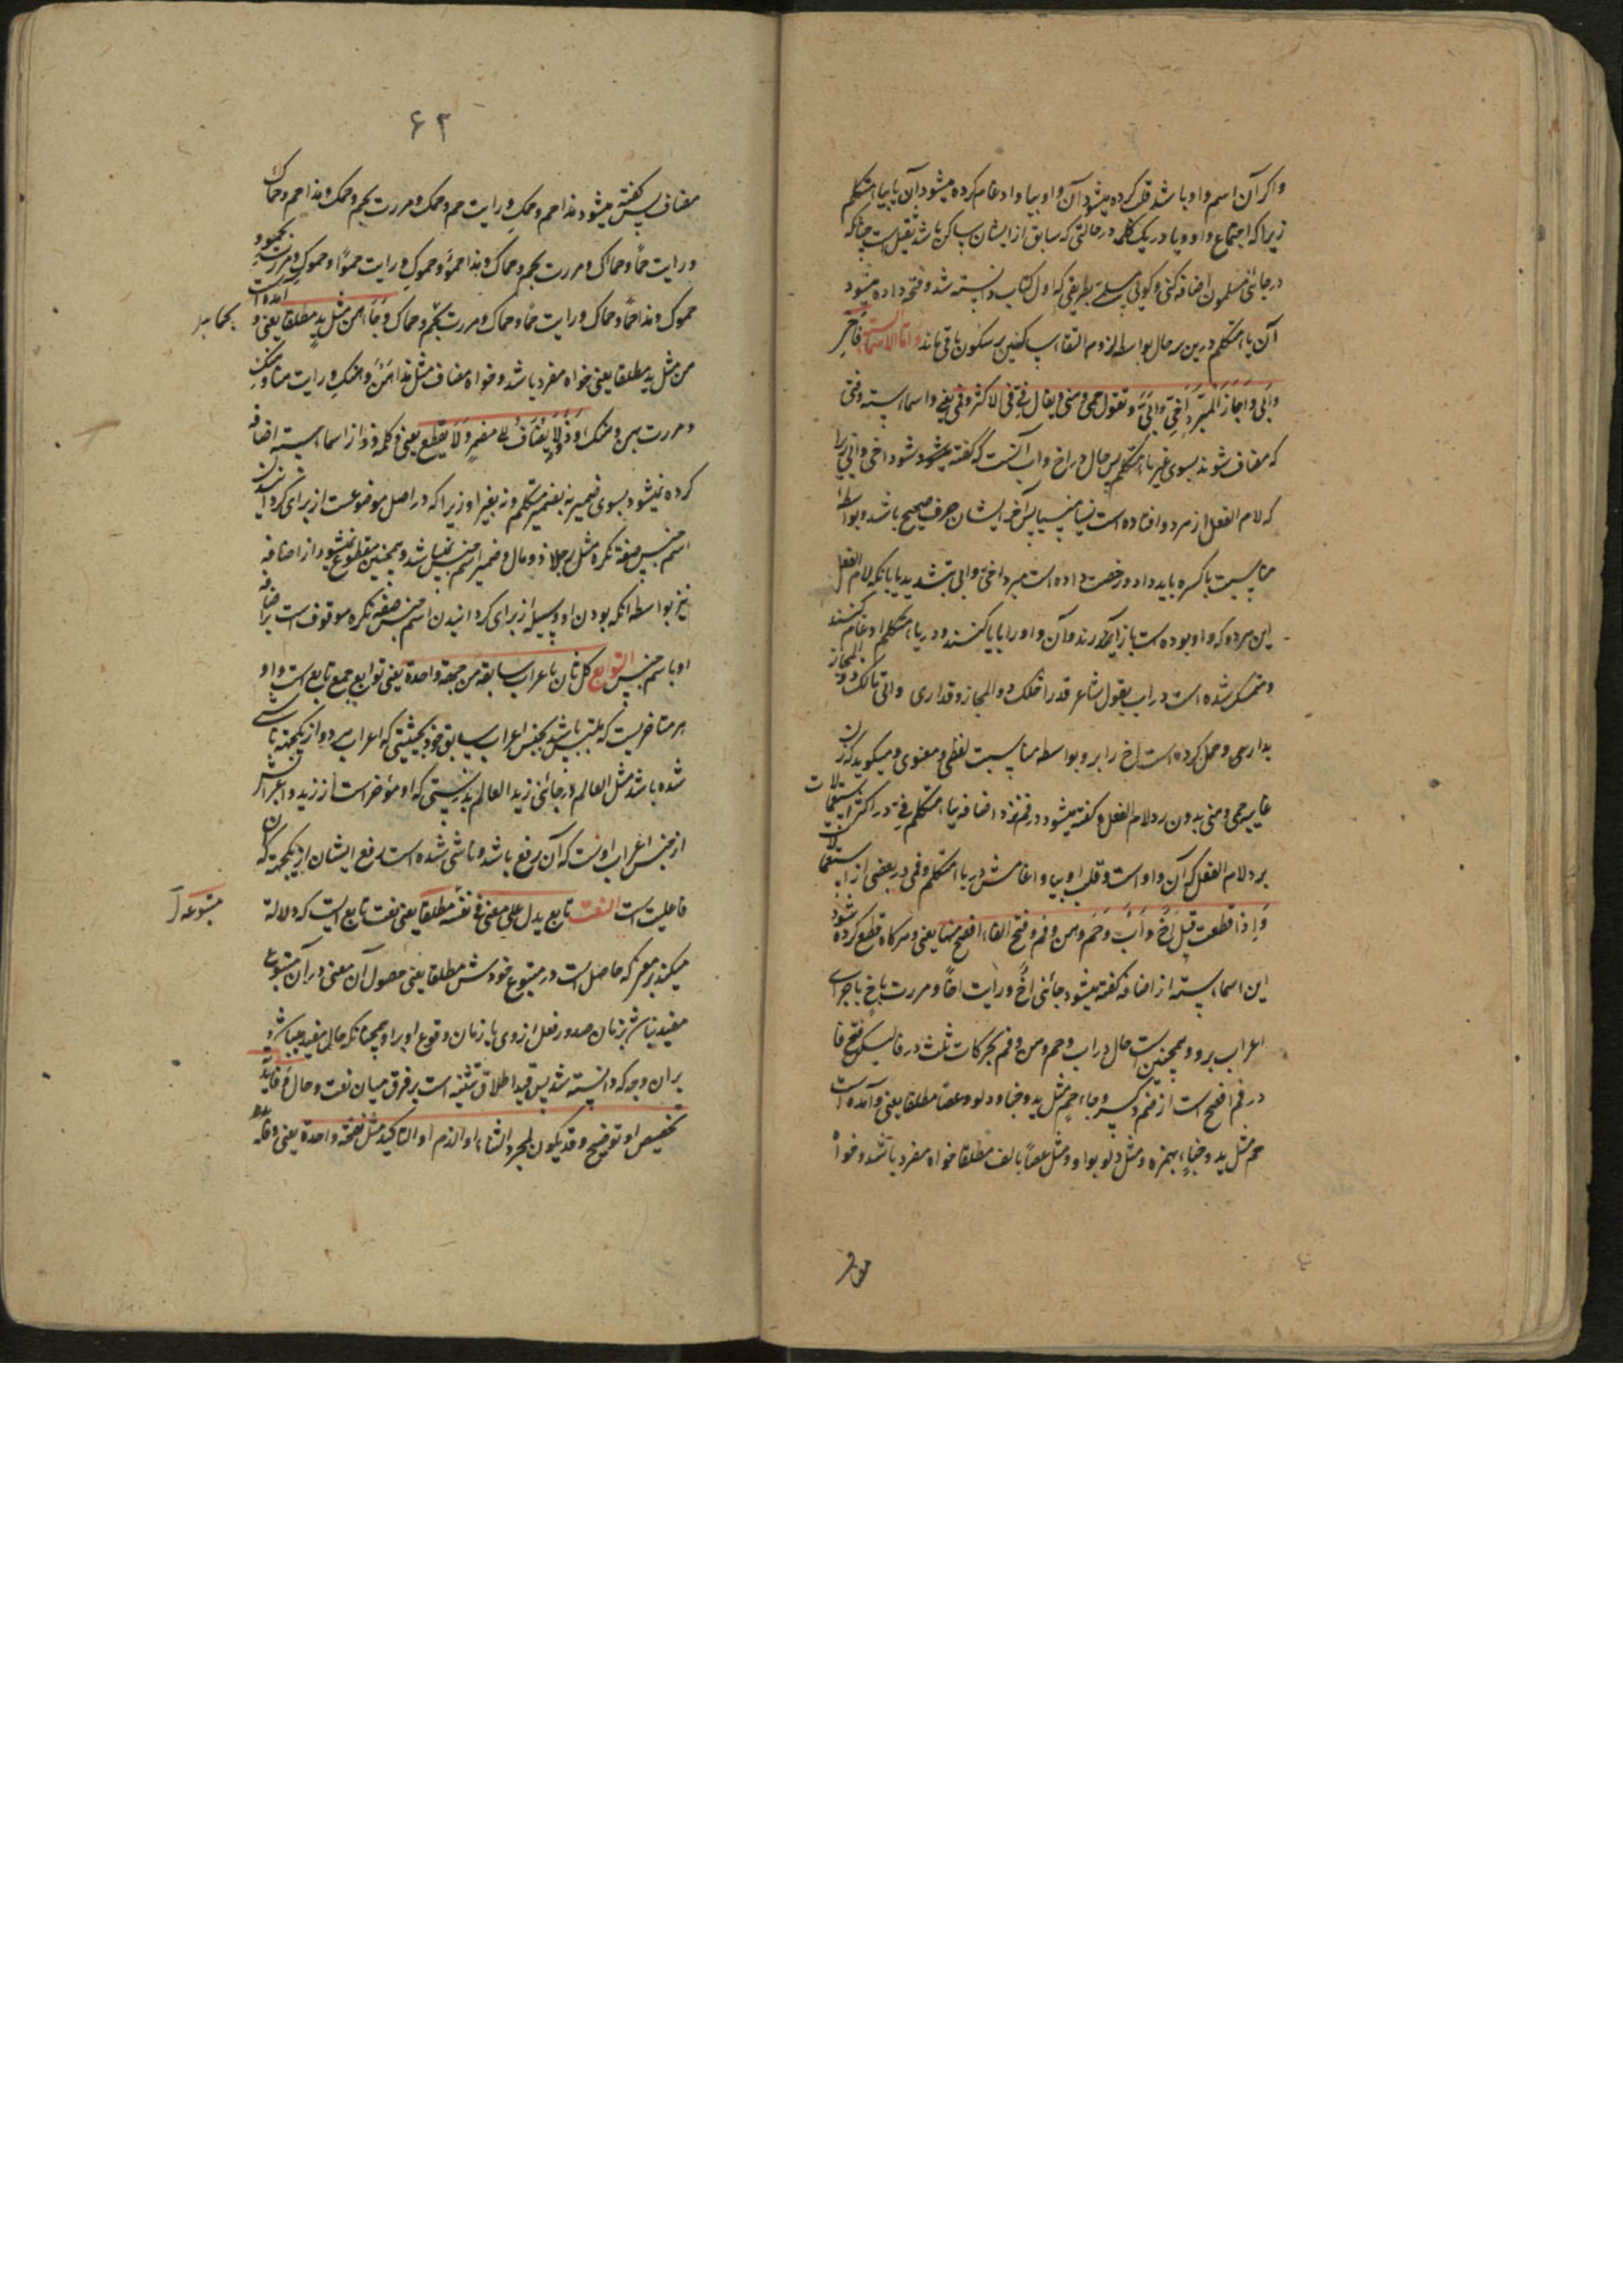 واکر آن اسم واو باشد قلب کرده میشود آن واو بیا وادغام کرده میشود آن یا بیاء متکلم
زیراکه اجتماع واو ویا در یک کلمه در حالتی که سابق از ایشان ساکن باشد ثقیل است چنانکه
در جائنی مسلمون اضافه کنی وکوئی مسلمی بطریقی که اول کتاب دانسته شد وفتحه داده میشود
آن یاء متکلم درین سه حال بواسطه لزوم التقاء ساکنین بر سکون باقی ماند واما الاسماء الستة فاخی
وابی واجاز المبرد اخی وابی وتقول حمی وهنی ویقال فی فی الاکثر وفمی یعنی واسماء سته وقتی
که مضاف شوند بسوی غیر یاء متکلم پس حال در اخ واب آنست که گفته میشود اخی وابی زیرا
که لام الفعل از هر دو افتاده است نسیا منسیا پس آخر ایشان حرف صحیح باشد وبواسطه
مناسبت یا کسره باید داد ورخصت داده است مبرد اخی وابی بتشدید یا بآنکه لام الفعل
این هر دو که واو بوده است باز آورند وآن واو را یا کنند ودر یاء متکلم ادغام کنند
ومتمسک شده است در اب بقول شاعر قدر احلک ذو المجاز وقد اری وابی مالک ذو المجاز
بدار وحمل کرده است اخ را برو بواسطه مناسبت لفظی ومعنوی ومیکوید که زن
غایبه حمی وهنی بدون رد لام الفعل وکفته میشود در فم نزد اضافه بیاء متکلم فی در اکثر استعمالات
برد لام الفعل که آن واو است وقلب او بیا وادغامش در یاء متکلم وفمی در بعضی از استعمالات
واذا قطعت قیل اخ واب وحم وهن وفم وفتح الفاء افصح منها یعنی وهرکاه قطع کرده شود
این اسماء سته از اضافه کفته میشود جائنی اخ ورایت اخا ومررت باخ باجرای
اعراب برو وهمچنین است حال در اب وحم وهن وفم بحرکات ثلث در فا لیکن فتح فا
در فم افصح است از ضم وکسر وجاء حم مثل ید وخبا ودلو وعصا مطلقا یعنی وآمده است
حم مثل ید وخباء بهمزه ومثل دلو بواو ومثل عصا بالف مطلقا خواه مفرد باشد وخواه
۶۲
مضاف پس کفته میشود هذا حم وحمک ورایت حم وحمک ومررت بحم وحمک وهذا حم وحماک
ورایت حما وحماک ومررت بحم وحماک وهذا حمو وحموک ورایت حموا وحموک ومررت بحمو و
حموک وهذا حما وحماک ورایت حما وحماک ومررت بحم وحماک وجاء هن مثل ید مطلقا یعنی وآمده است
من مثل ید مطلقا یعنی خواه مفرد باشد وخواه مضاف مثل هذا هن وهنک ورایت هنا وهنک
ومررت بهن وهنک وذو لا یضاف الی مضمر ولا یقطع یعنی وکلمه ذو از اسماء سته اضافه
کرده نمیشود بسوی ضمیر نه بضمیر متکلم ونه بغیر او زیراکه در اصل موضوعست از برای کردانیدن
اسم جنس صفة نکره مثل رجل ذو مال وضمیر اسم جنس نمیباشد وهمچنین مقطوع نمیشود از اضافه
نیز بواسطه آنکه بودن او وسیله از برای کردانیدن اسم جنس صفة نکره موقوف است بر اضافه
او باسم جنس التوابع کل ثان باعراب سابقه من جهة واحدة یعنی توابع جمع تابع است واو
هر متاخریست که ملتبس باشد بجنس اعراب سابق خود بحیثیتی که اعراب هر دو از یکجهة ناشی
شده باشد مثل العالم در جائنی زید العالم بدرستی که او مؤخر است از زید واعرابش
از جنس اعراب اوست که آن رفع باشد وناشی شده است رفع ایشان از یکجهة که آن
فاعلیت است النعت تابع یدل علی معنی فی نفسه مطلقا یعنی نعت تابع است که دلالة
متبوعه
میکند بر معنی که حاصل است در متبوع خودش مطلقا یعنی حصول آن معنی در آن متبوع
مقید نباشد بزمان صدور فعل از وی یا زمان وقوع او برو همچنانکه حال مقید میباشد
بران وجه که دانسته شد پس قید اطلاق تنبیه است بر فرق میان نعت وحال وفایدته
تخصیص او توضیح وقد یکون لمجرد الثناء او الذم او التاکید مثل نفخة واحدة یعنی وفایده